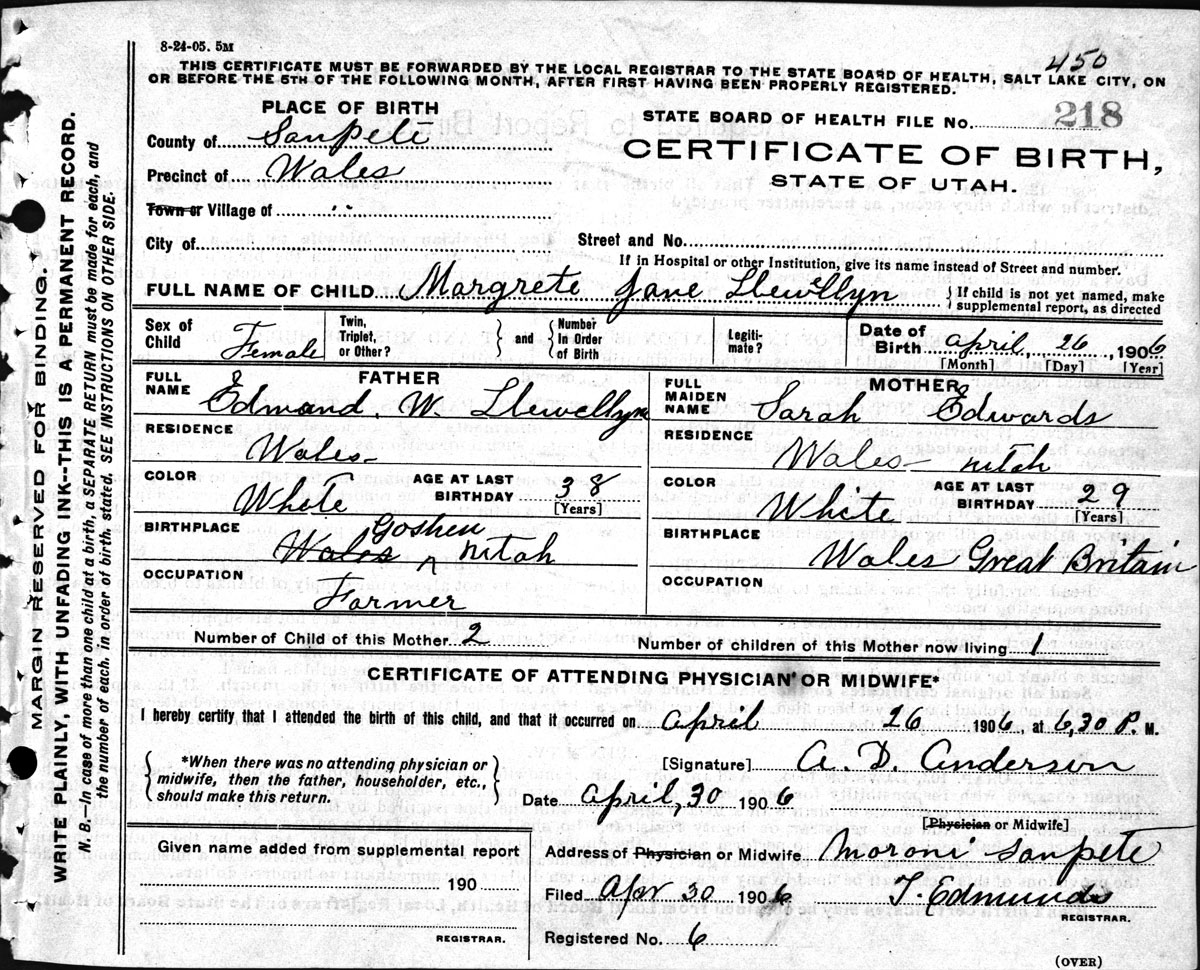 8-24-05. 5M
450
THIS CERTIFICATE MUST BE FORWARDED BY THE LOCAL REGISTRAR TO THE STATE BOARD OF HEALTH, SALT LAKE CITY, ON
OR BEFORE THE 5TH OF THE FOLLOWING MONTH, AFTER FIRST HAVING BEEN PROPERLY REGISTERED.
PLACE OF BIRTH
County of Sanpete
Precinct of Wales
Town or Village of ..
City of
STATE BOARD OF HEALTH FILE No. 218
CERTIFICATE OF BIRTH,
STATE OF UTAH.
Street and No.
If in Hospital or other Institution, give its name instead of Street and number.
FULL NAME OF CHILD Margrete Jane Llewellyn
If child is not yet named, make
supplemental report, as directed
Sex of
Child Female
Twin,
Triplet,
or Other?
and
Number
in Order
of Birth
Legiti-
mate?
Date of
Birth april, 26, 1906
[Month] [Day] [Year]
FATHER
FULL
NAME Edmond. W. Llewellyn
RESIDENCE
Wales
COLOR
White
AGE AT LAST
BIRTHDAY 38
[Years]
BIRTHPLACE
Goshen
Wales ^ nitah
OCCUPATION
Farmer
MOTHER
FULL
MAIDEN
NAME Sarah Edwards
RESIDENCE
Wales nitah
COLOR
White
AGE AT LAST
BIRTHDAY 29
[Years]
BIRTHPLACE
Wales Great Britain
OCCUPATION
Number of Child of this Mother 2
Number of children of this Mother now living 1
CERTIFICATE OF ATTENDING PHYSICIAN OR MIDWIFE*
I hereby certify that I attended the birth of this child, and that it occurred on april 26 1906, at 6,30 P. M.
*When there was no attending physician or
midwife, then the father, householder, etc.,
should make this return.
[Signature] A. D. Anderson
Date april, 30 1906
[Physician or Midwife]
Given name added from supplemental report
190
REGISTRAR.
Address of Physician or Midwife Moroni Sanpete
Filed apr 30 1906 T. Edmunds
REGISTRAR.
Registered No. 6
(OVER)
MARGIN RESERVED FOR BINDING.
WRITE PLAINLY, WITH UNFADING INK--THIS IS A PERMANENT RECORD.
N. B.—In case of more than one child at a birth, a SEPARATE RETURN must be made for each, and
the number of each, in order of birth, stated. SEE INSTRUCTIONS ON OTHER SIDE.